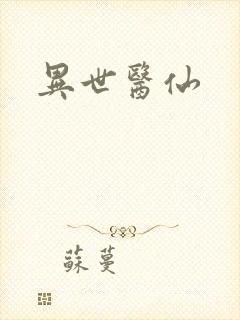 異世醫仙
蘇蔓